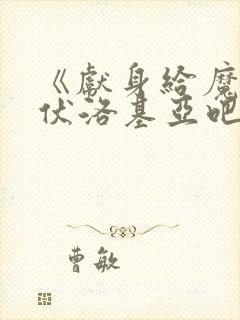 《獻身給魔
伏洛基亞吧
曹敏